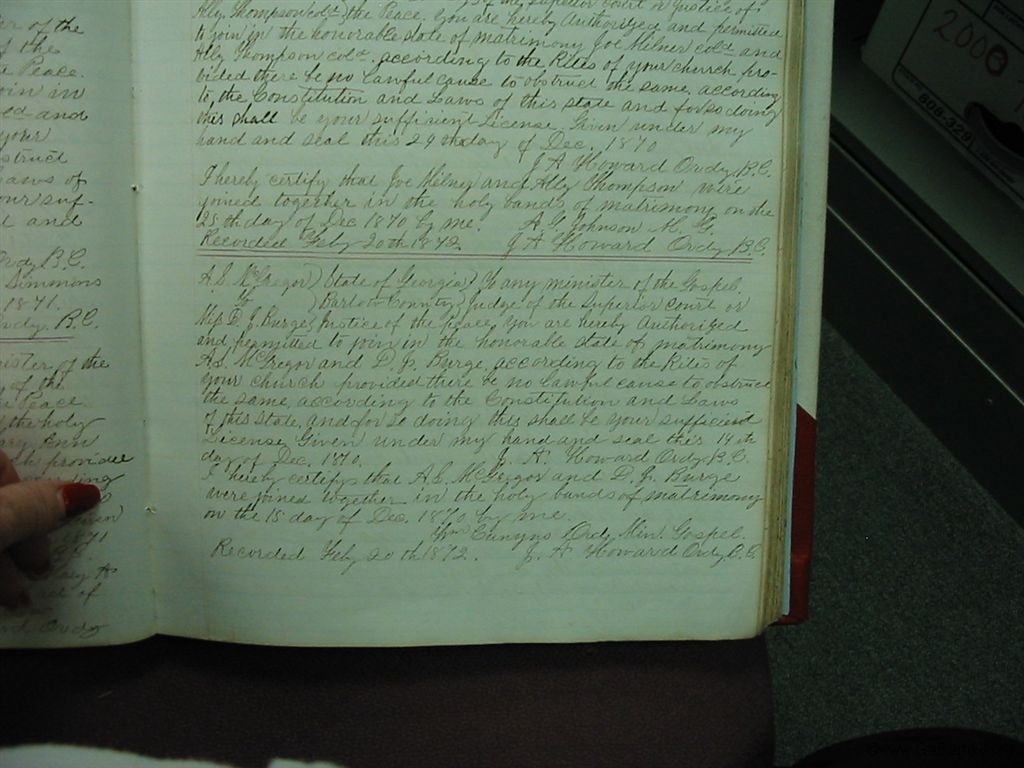 er of the
of the
e Peace.
oin in
cold and
your
struct
Laws of
our suf-
l and
Ordy B.C.
Simmons
1871.
Ordy. B.C.
ister of the
of the
e Peace
the holy
Ann
provided
1871
of
Ordy
of the superior court or Justice of
Ally Thompson cold. the Peace. You are hereby Authorized and permitted
to join in the honorable state of matrimony Joe Milner cold and
Ally Thompson cold. according to the Rites of your church pro-
vided there be no lawful cause to obstruct the same, according
to, the Constitution and Laws of this state and for so doing
this shall be your sufficient License, Given under my
hand and seal this 29 th day of Dec. 1870
J A Howard Ordy B.C.
I hereby certify that Joe Milner and Ally Thompson were
joined together in the holy bands of matrimony on the
25 th day of Dec 1870 by me. A. G. Johnson M. G.
Recorded Feby 20th 1872. J A Howard Ordy B.C.
A.S. McGregor) State of Georgia) To any minister of the Gospel,
To ) Bartow County) Judge of the superior court or
Miss D. J. Burge) Justice of the peace, You are hereby Authorized
and permitted to join in the honorable state of matrimony
A.S. McGregor and D. J. Burge, according to the Rites of
your church provided there be no lawful cause to obstruct
the same, according to the Constitution and Laws
of this State, and for so doing this shall be your sufficient
License, Given under my hand and seal this 14 th
day of Dec. 1870. J. A. Howard Ordy. B.C.
I hereby certify that A.S. McGregor and D. J. Burge
were joined together in the holy bands of matrimony
on the 15 day of Dec. 1870 by me
Cunyus Ord. Min. Gospel.
Recorded Feby 20 th 1872. J. A. Howard Ordy. B.C.
2000
808-329